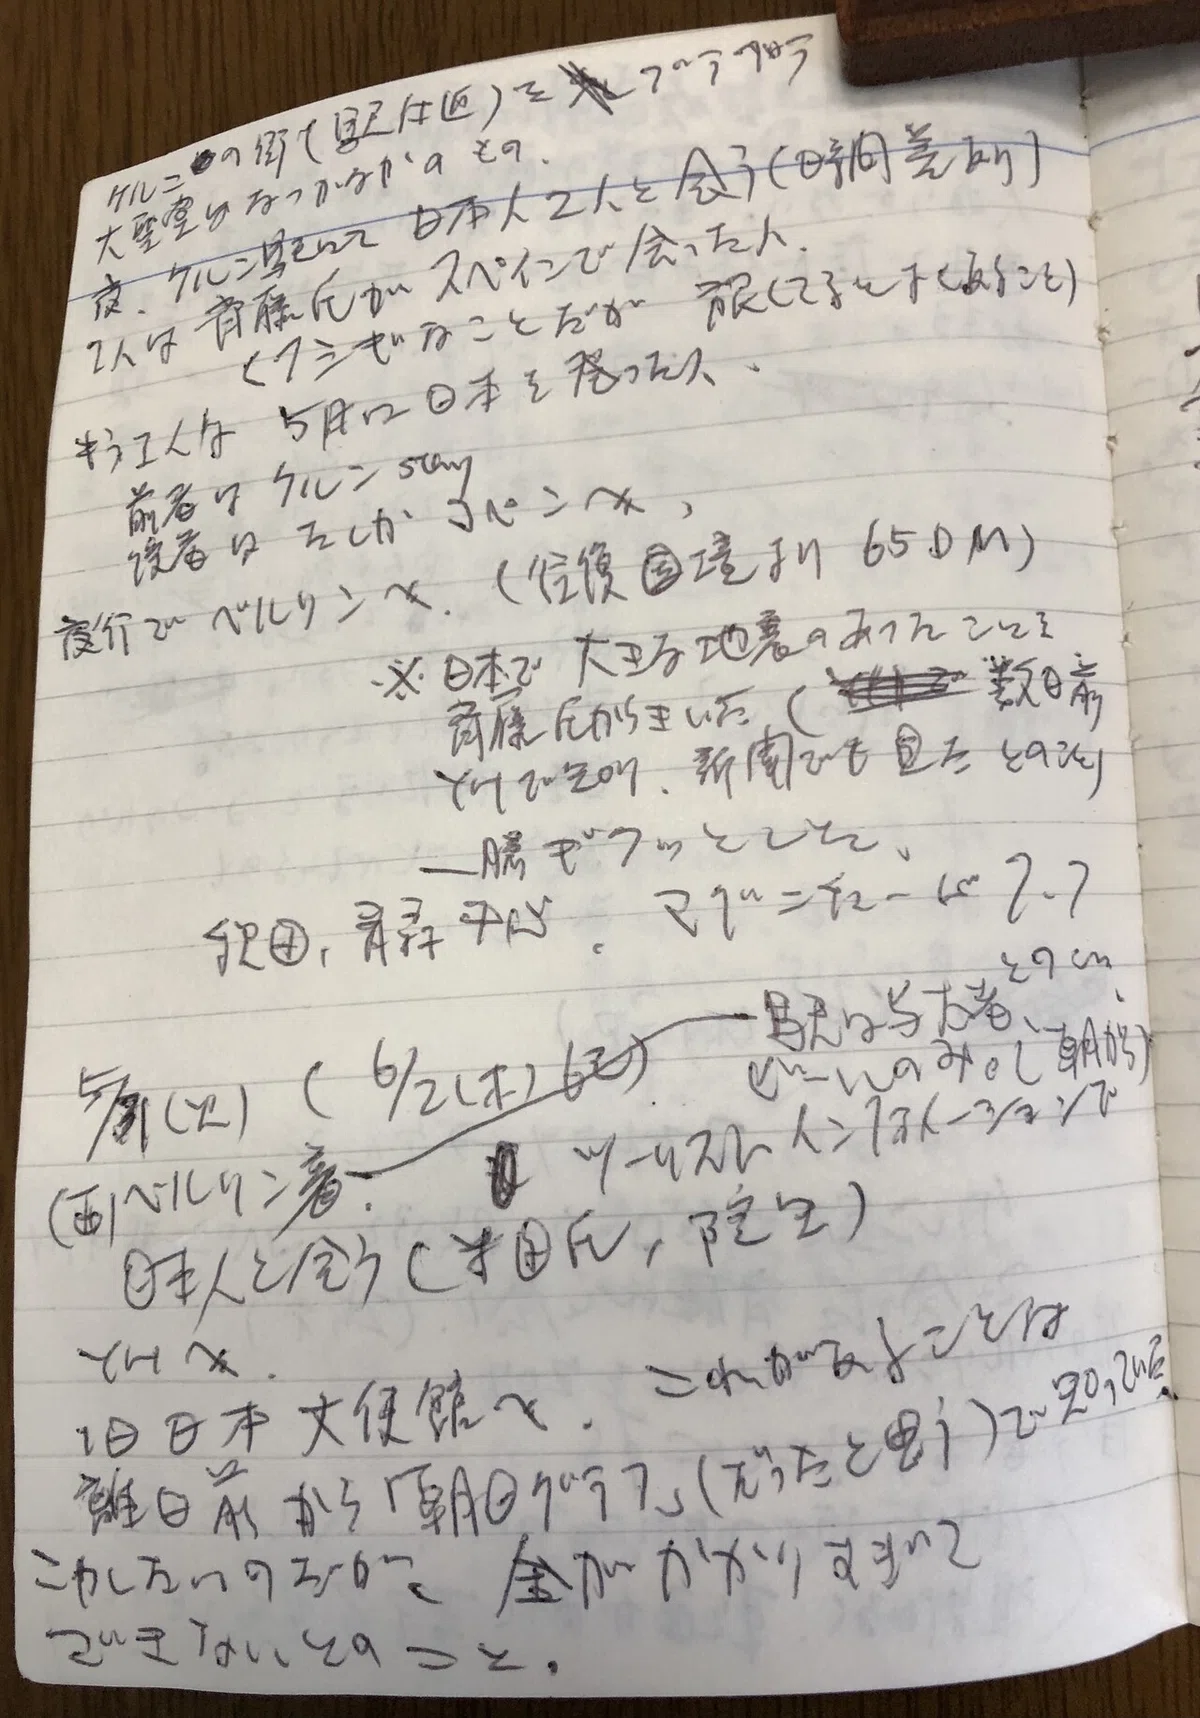 ケルンの街(駅付近)を ブラブラ
大聖堂はなかなかのもの.
夜.ケルン駅にて 日本人2人と会う(時間差あり)
1人は斉藤氏がスペインで会った人.
(フシギなことだが 旅してるとよくあること)
もう1人は 5月に日本を発った人.
前者は ケルン stay
後者は たしか コペンへ,
夜行で ベルリンへ. (往復国境より 65DM)
※ 日本で 大きな地震のあったことを
斉藤氏からきいた ( 数日前
YHで知り.新聞でも見た とのこと)
一瞬ギクッとした.
秋田,青森 中心. マグニチュード 7.7
とのこと.
5/31(火) (6/2(木)記) 駅は与太者,
ビールのみ 朝から)
(西)ベルリン着. ツーリストインフォメーションで
日本人と会う(米田氏,院生)
YHへ.
旧日本大使館へ. これがあることは
離日前から「朝日グラフ」(だったと思う)で知っていた.
こわしたいのだが、金がかかりすぎて
できないとのこと.